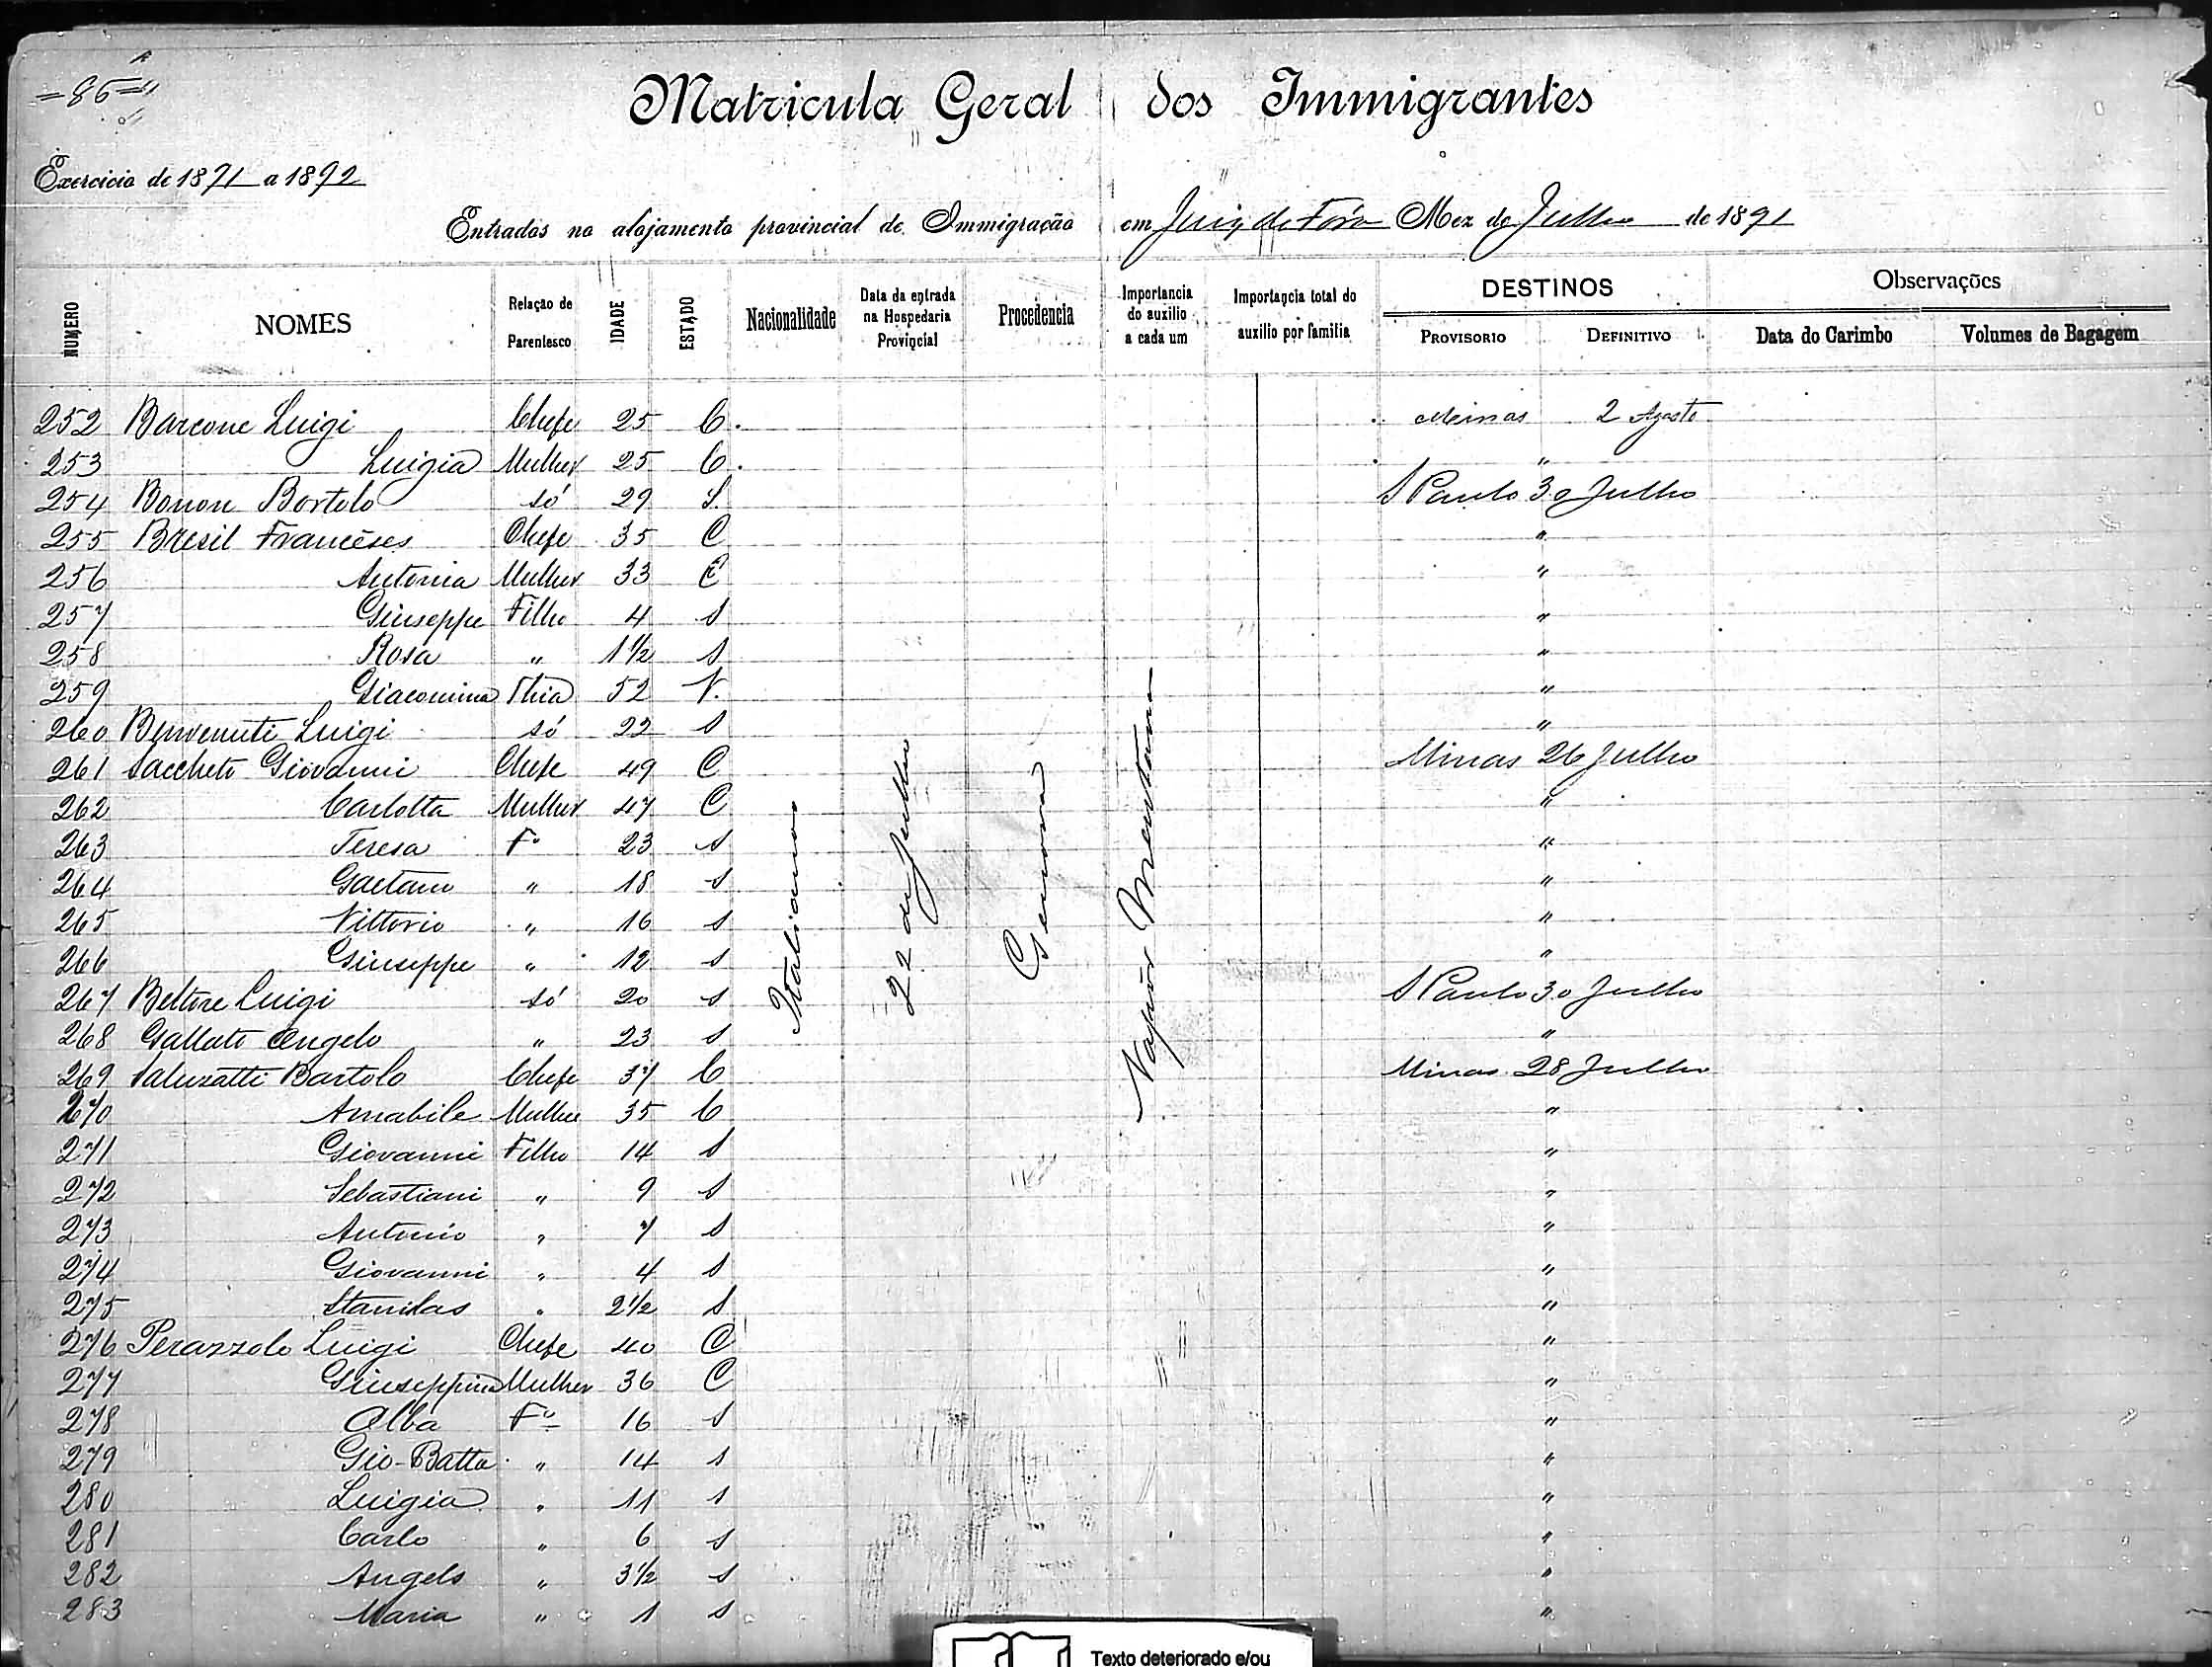 = 86 =
Matricula Geral dos Immigrantes
Exercicio de 1891 a 1892
Entrados no alojamento provincial de Immigração em Juiz de Fóra Mez de Julho de 1891
NUMERO NOMES Relação de Parentesco IDADE ESTADO Nacionalidade Data da entrada na Hospedaria Provincial Procedencia Importancia do auxilio a cada um Importancia total do auxilio por familia DESTINOS PROVISORIO DEFINITIVO Observações Data do Carimbo Volumes de Bagagem
252 Barcone Luigi Chefe 25 C. Minas 2 Agosto
253 Luigia Mulher 25 C. "
254 Bonon Bortolo só 29 S. S Paulo 30 Julho
255 Bresil Francêses Chefe 35 C "
256 Antonia Mulher 33 C "
257 Giuseppe Filho 4 S "
258 Rosa " 1 1/2 S "
259 Giacomina Thia 52 V. "
260 Benvenuti Luigi só 22 S "
261 Saccheto Giovanni Chefe 49 C Minas 26 Julho
262 Carlotta Mulher 47 C "
263 Teresa Fº 23 S "
264 Gaetano " 18 S "
265 Vittorio " 16 S "
266 Giuseppe " 12 S "
267 Bettore Luigi só 20 S S Paulo 30 Julho
268 Gallato Angelo " 23 S "
269 Saluzatti Bartolo Chefe 37 C Minas 28 Julho
270 Amabile Mulher 35 C "
271 Giovanni Filho 14 S "
272 Sebastiani " 9 S "
273 Antonio " 7 S "
274 Giovanni " 4 S "
275 Stanilas " 2 1/2 S "
276 Perazzolo Luigi Chefe 40 C "
277 Giuseppina Mulher 36 C "
278 Alba Fº 16 S "
279 Gio-Batta " 14 S "
280 Luigia " 11 S "
281 Carlo " 6 S "
282 Angelo " 3 1/2 S "
283 Maria " 1 S "
Italianos
22 de Julho
Genova
Vapôr Mentana
Texto deteriorado e/ou